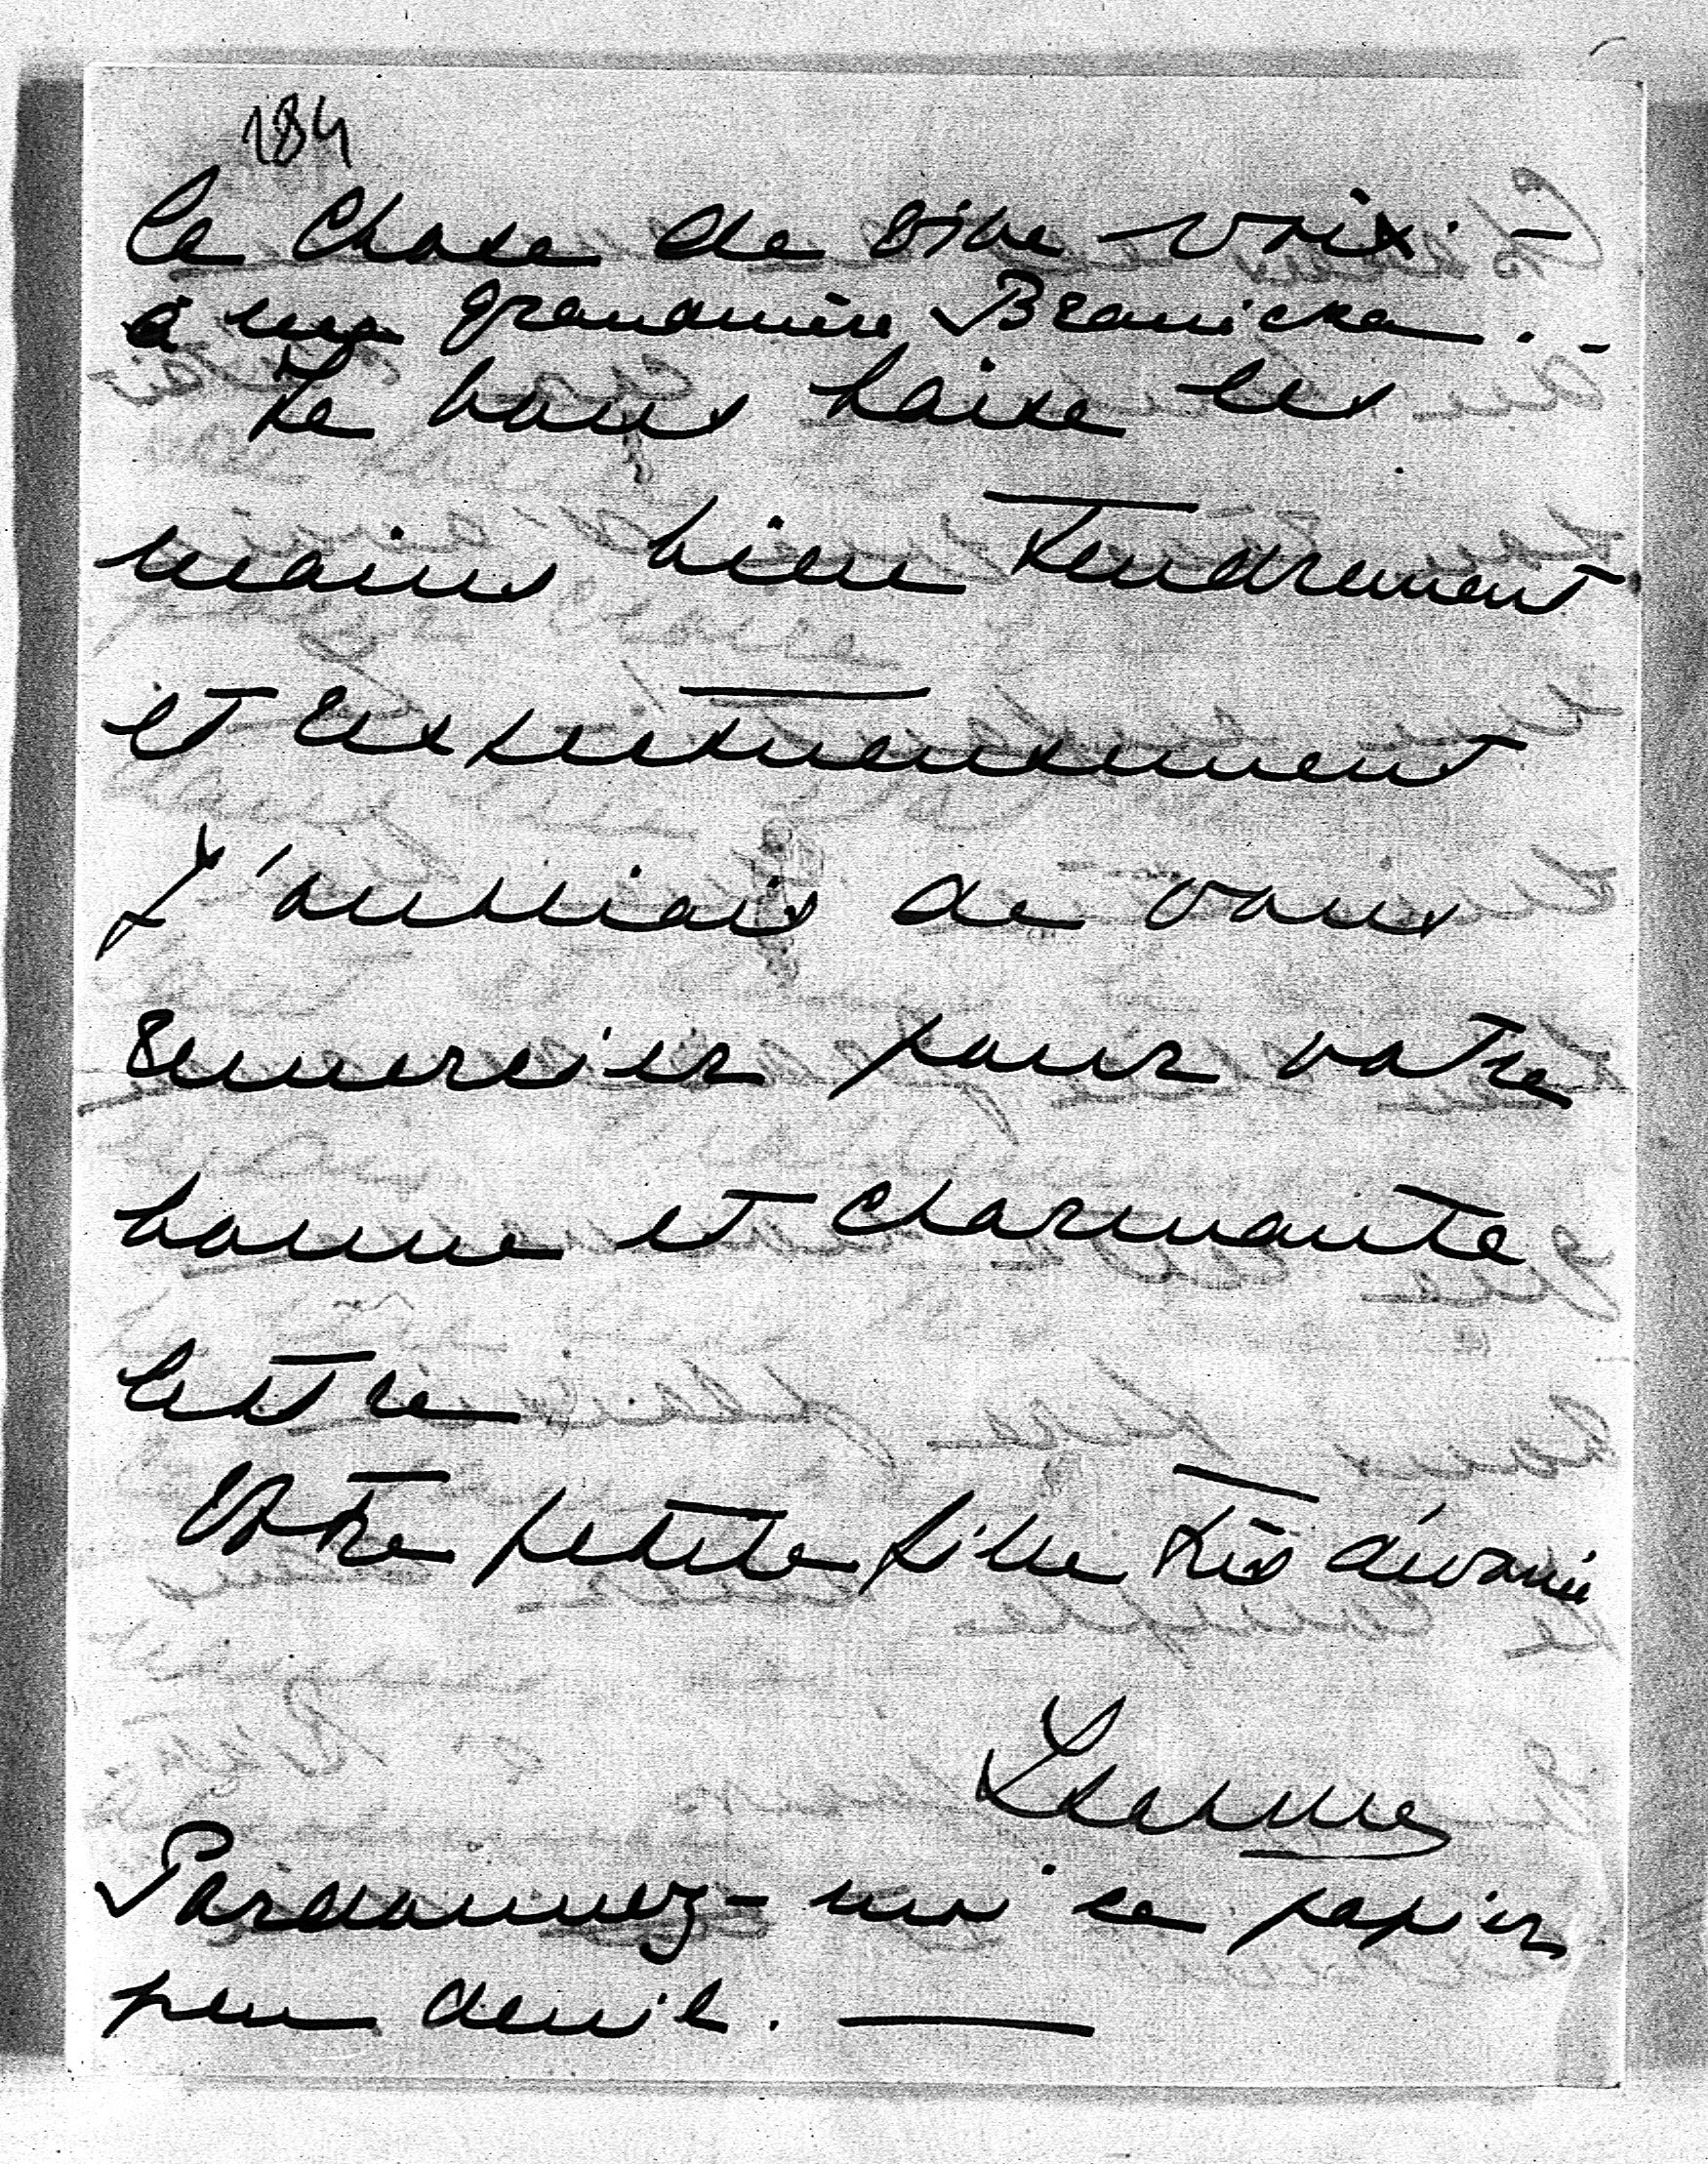 184
la chose de vive voix. —
à ma grandmère Branicka. —
Je vous baise les
mains bien tendrement
et respectueusement
J'oubliais de vous
remercier pour votre
bonne et charmante
lettre
Votre petite fille très dévouée
Pardonnez-moi ce papier
peu deuil. —